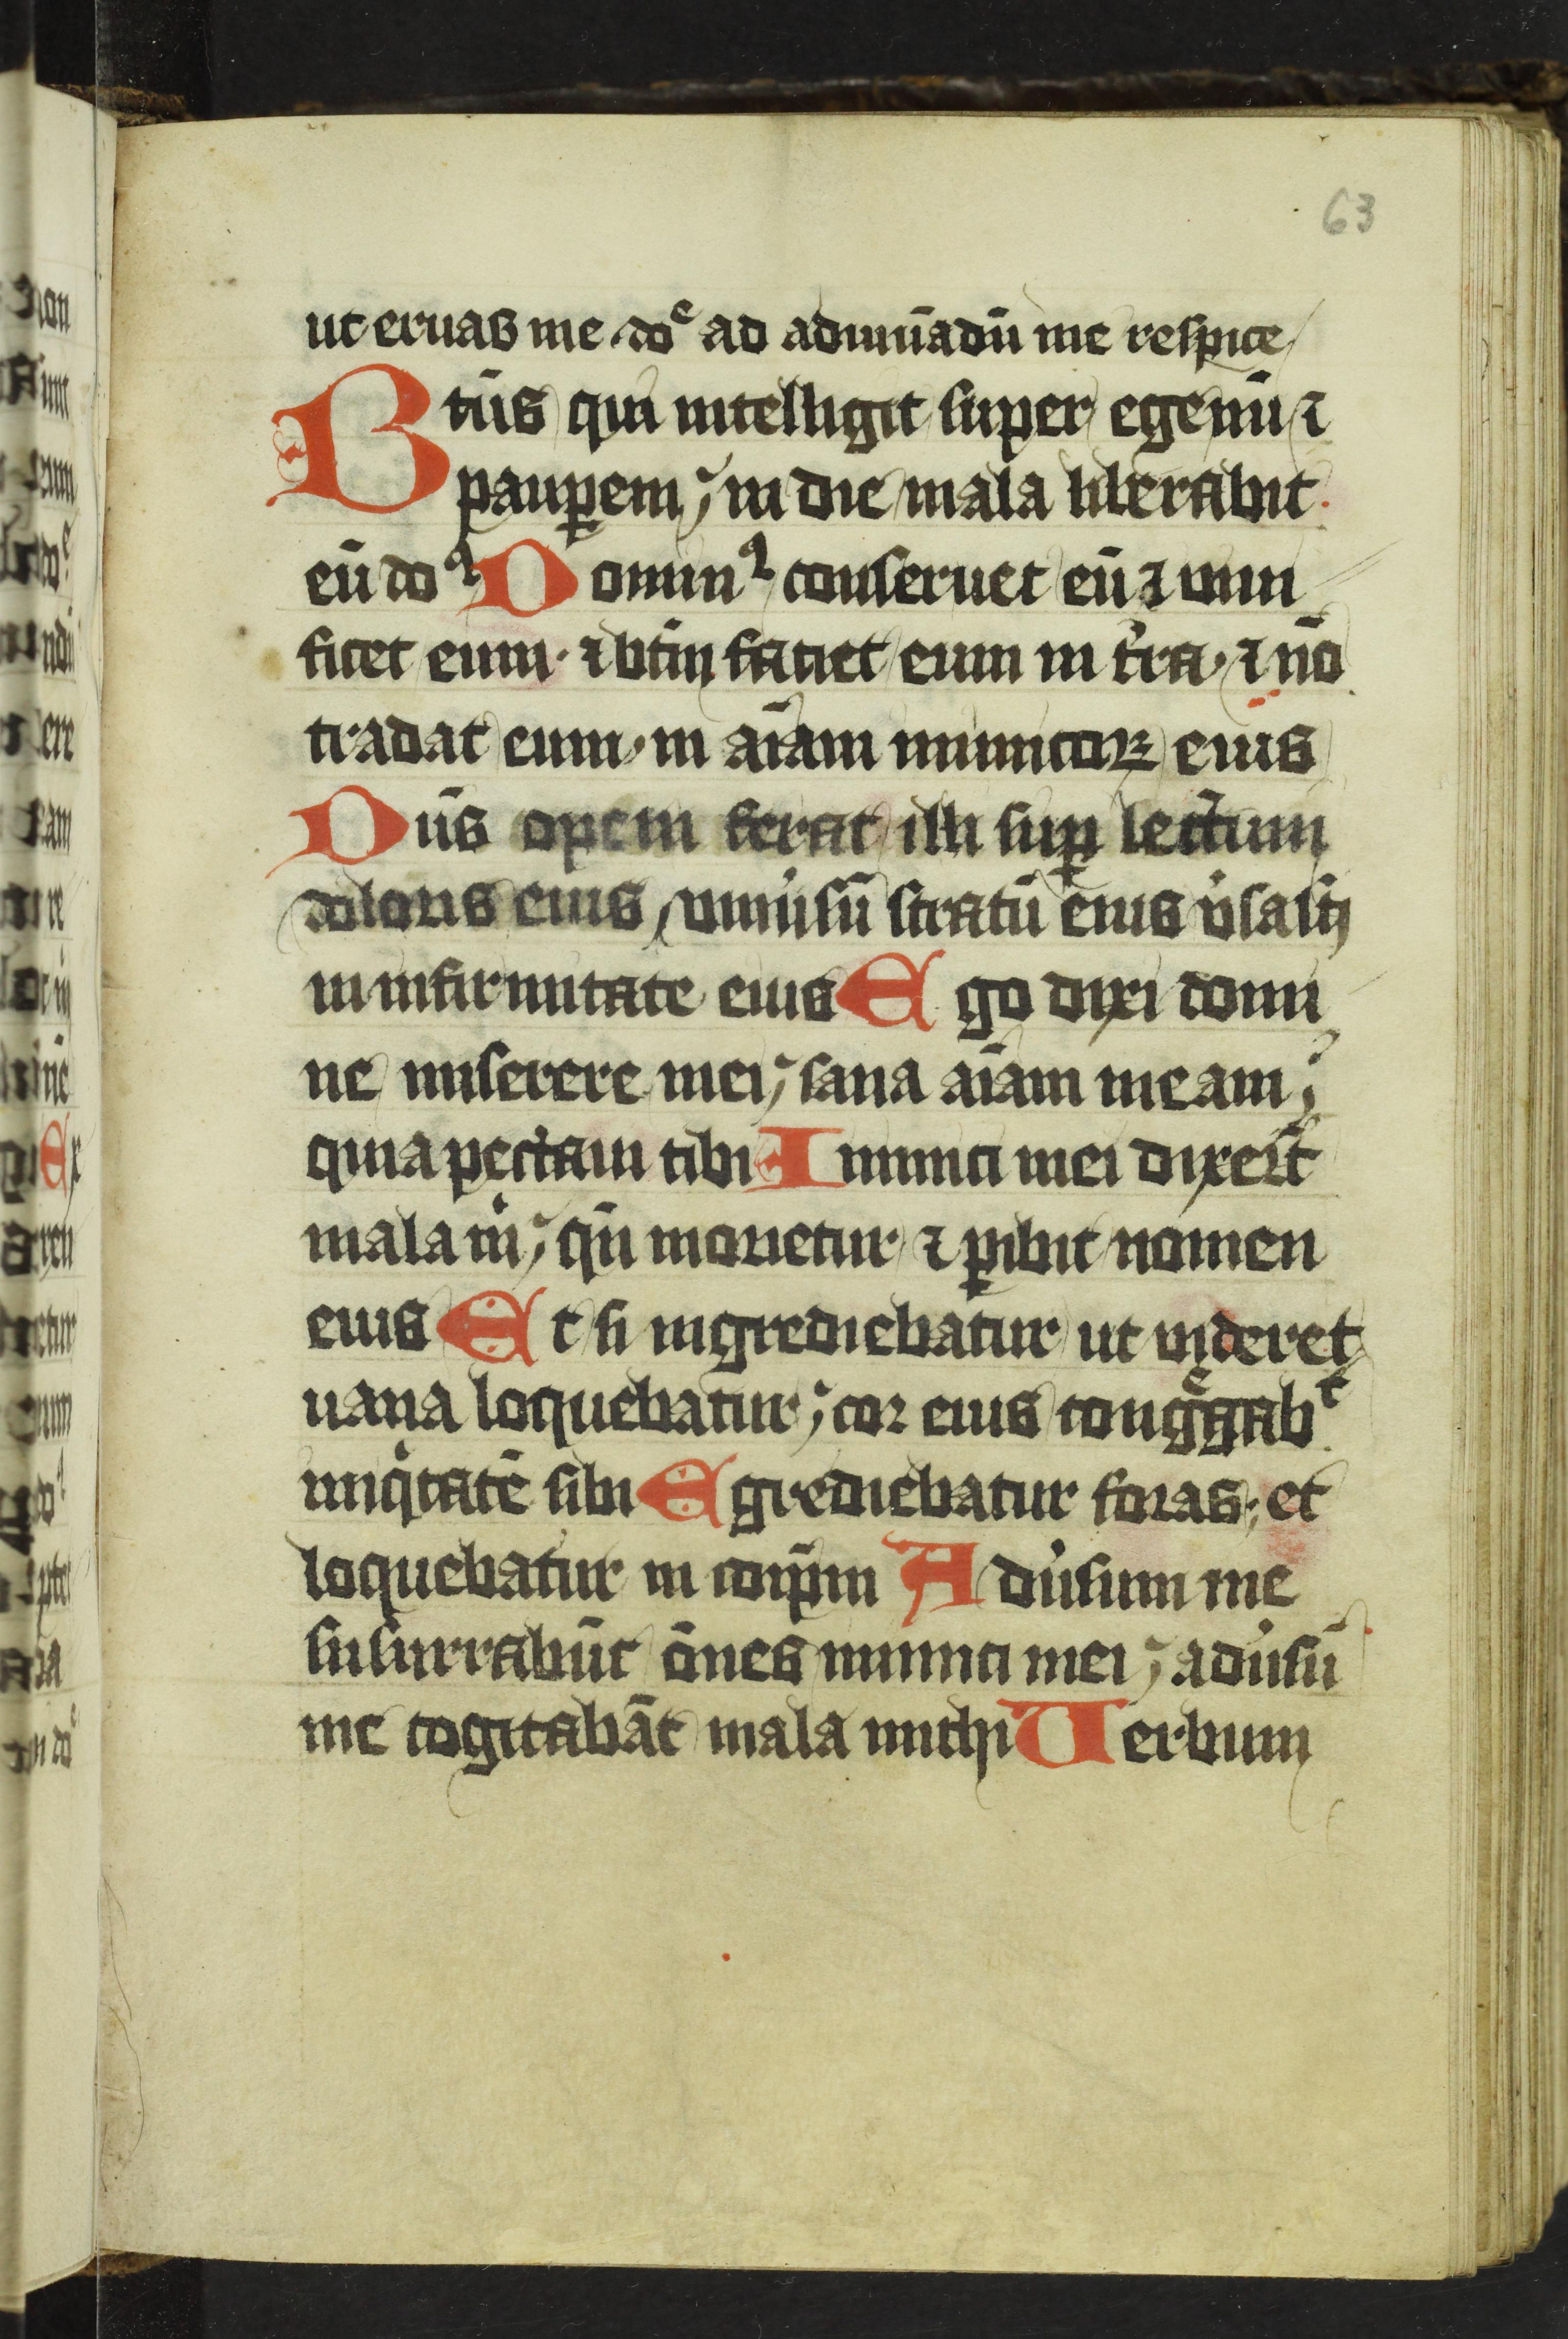 63
ut eruas me doᵉ ad adiuuādū me respice
Btūs qui intelligit super egenū ⁊
paup̱em; in die mala liberabit
eū doꝰ Dominꝰ conseruet eū ⁊ viui
ficet eum · ⁊ btm̄ faciet eum in t̄ra · ⁊ nō
tradat eum · in aīam inimicoꝝ eius
Dn̄s opem ferat illi sup̱ lectum
doloris eius, vniūsū stratū eius v̄sasti
in infirmitate eius Ego dixi domi
ne miserere mei; sana aīam meam;
quia peccaui tibi Inimici mei dixer̄t
mala m̄; qn̄ morietur ⁊ p̱ibit nomen
eius Et si ingrediebatur ut videret
uana loquebatur; cor eius cong̊gabᵗ
iniqͥtatē sibi Egrediebatur foras; et
loquebatur in idip̄m Adūsum me
susurrabūt ōnes inimici mei; adūsū
me cogitabāt mala michi Uerbum